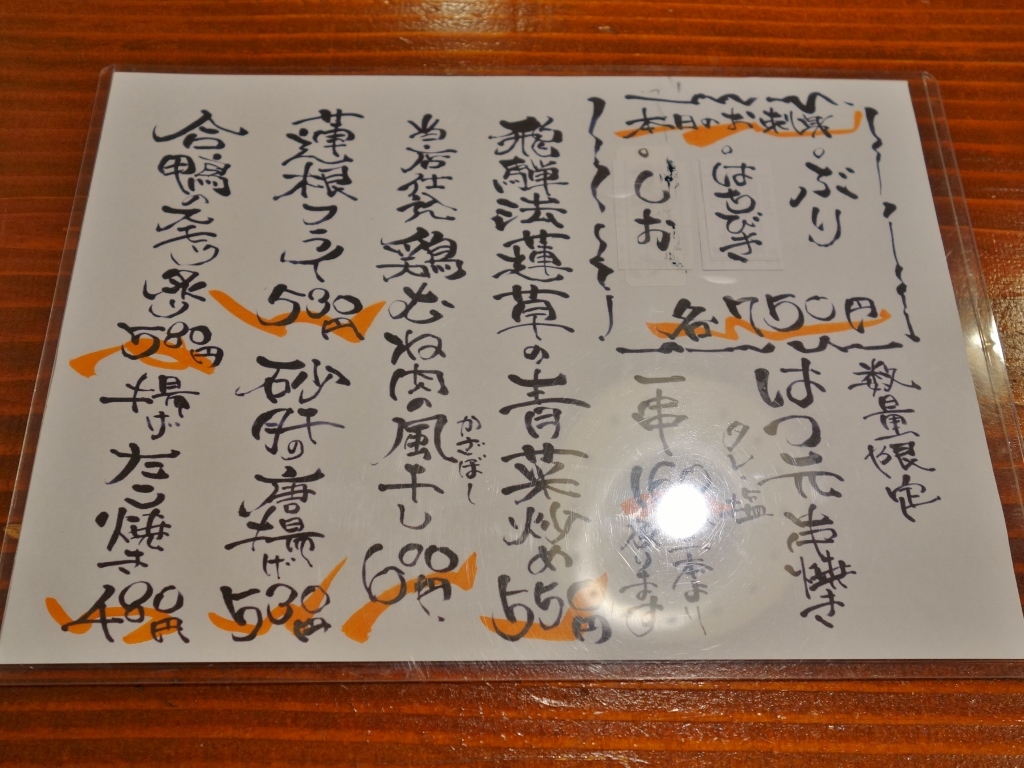 本日のお刺身
・ぶり
・はちびき
・しお
各750円
数量限定
はつ元串焼き
タレ・塩
一串160
二本より
承ります
飛騨法蓮草の青菜炒め 550円
当店仕込 鶏むね肉の風干し 600円
かざぼし
蓮根フライ 530円
砂肝の唐揚げ 530円
合鴨のスモーク炙り 580円
揚げたこ焼き 480円